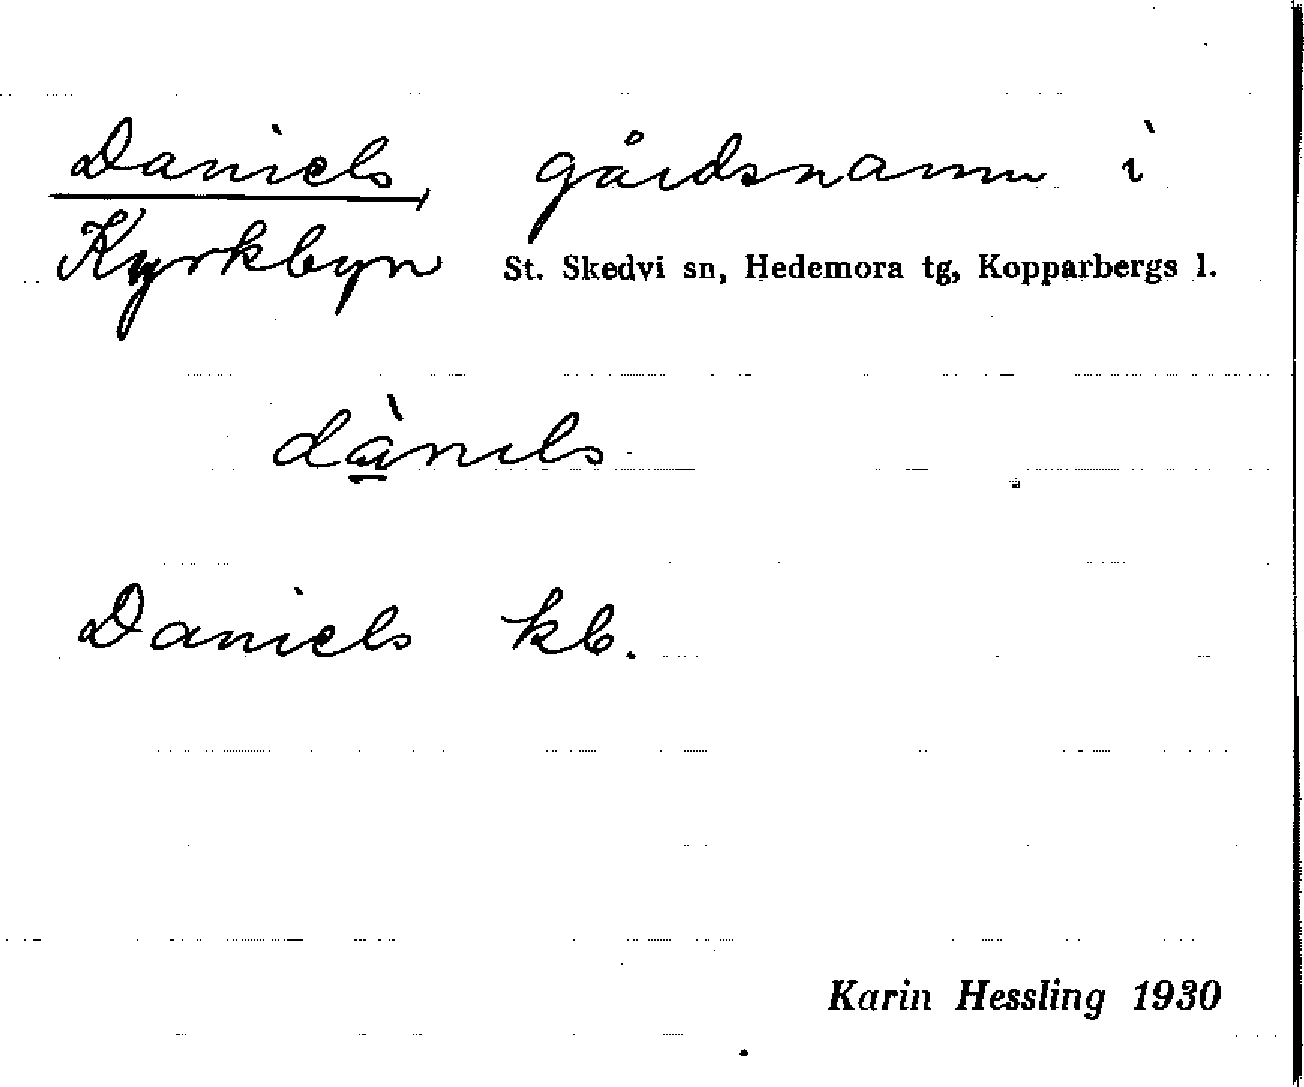 Daniels, gårdsnamn i
Kyrkbyn St. Skedvi sn, Hedemora tg, Kopparbergs l.
dànıls
Daniels kb.
Karin Hessling 1930